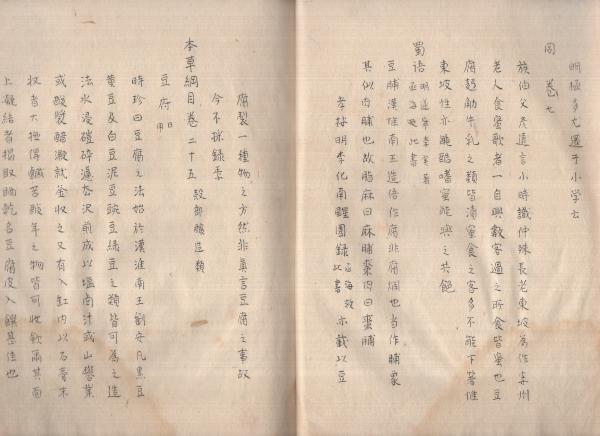 同 卷七
族伯父彥遠言小時識仲殊長老東坡為作安州
老人食蜜歌者一日與數客過之所食皆蜜也豆
腐麪觔牛乳之類皆漬蜜食之客多不能下箸惟
東坡性亦酷嗜蜜能與之共飽
蜀語
豆脯漢淮南王造俗作腐非腐爛也當作脯象
其似肉脯也故脂麻曰麻脯棗肉曰棗脯
李化南醒園錄 函海 亦載以豆
腐製一種物之方然非真言豆腐之事故
今不採錄焉
本草綱目卷二十五 穀部 造類
豆腐 日用
時珍曰豆腐之法始於漢淮南王劉安凡黑豆
黃豆及白豆泥豆豌豆綠豆之類皆可為之造
法水浸磑碎濾去滓煎成以鹽鹵汁或山礬葉
或酸漿醋澱就釜收之又有入缸內以石膏末
收者大抵得鹹苦酸辛之物皆可收斂爾其面
上凝結者揭取晒乾名豆腐皮入饌甚佳也